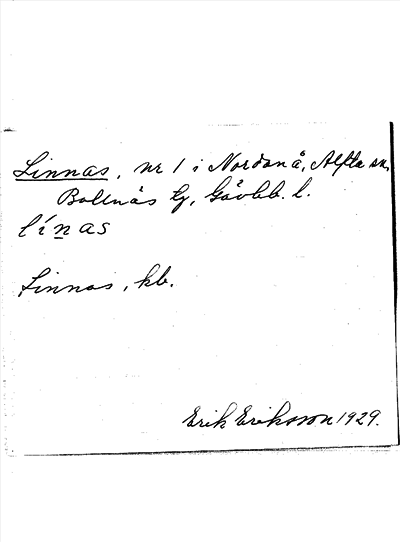 Linnas, nr 1 i Nordanå, Alfta sn,
Bollnäs tg, Gävleb. l.
línas
Linnas, kb.
Erik Eriksson 1929.